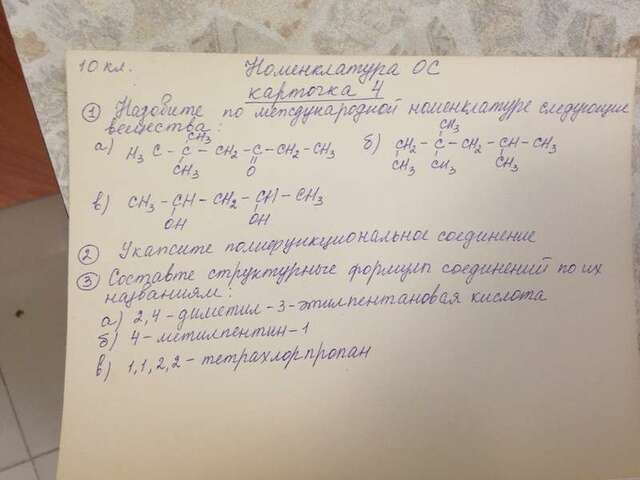 10 кл. Номенклатура ОС
карточка 4
① Назовите по международной номенклатуре следующие
вещества:
CH₃
а) H₃C – C – CH₂ – C – CH₂ – CH₃
CH₃ O
CH₃
б) CH₂ – C – CH₂ – CH – CH₃
CH₃ CH₃ CH₃
в) CH₃ – CH – CH₂ – CH – CH₃
OH OH
② Укажите полифункциональное соединение
③ Составте структурные формулы соединений по их
названиям:
а) 2,4-диметил-3-этилпентановая кислота
б) 4-метилпентин-1
в) 1,1,2,2-тетрахлорпропан